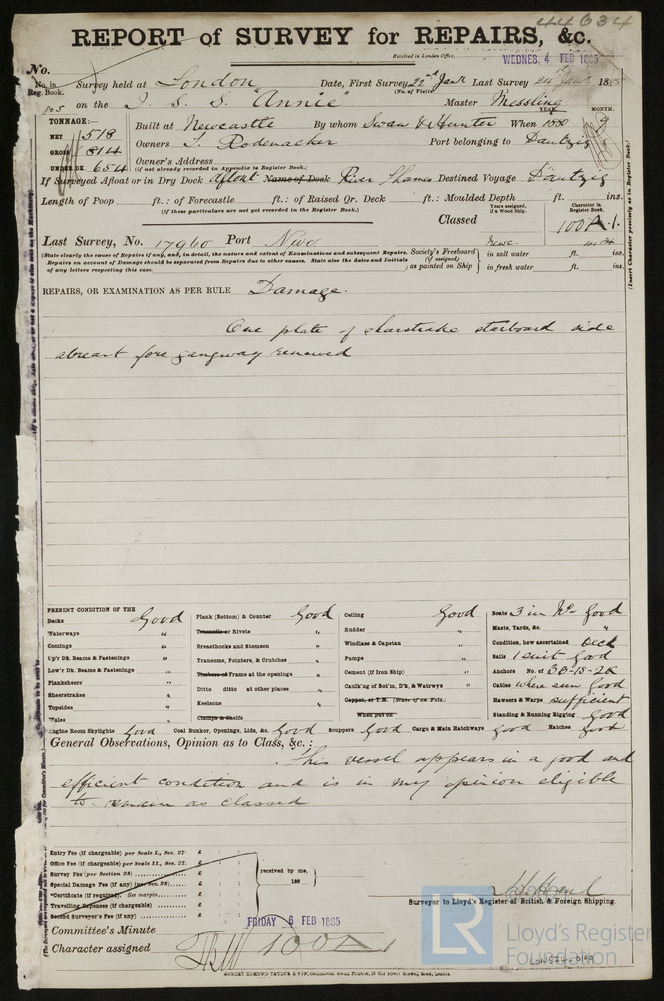 44634
REPORT of SURVEY for REPAIRS, &c.
Received in London Office,
WEDNES. 4 FEB 1885
No.
No. in Reg. Book. Survey held at London Date, First Survey 22nd Jany Last Survey 24th Jany 1885
(No. of Visits)
on the I. S. S. "Annie" Master Messling
TONNAGE:— YEAR. MONTH.
NET 518 Built at Newcastle By whom Swan & Hunter When 1880 9
GROSS 814 Owners T. Rodenacker Port belonging to Dantzig
UNDER DK. 654 Owner's Address
(if not already recorded in Appendix to Register Book.)
If Surveyed Afloat or in Dry Dock Afloat Name of Dock River Thames Destined Voyage Dantzig
Length of Poop ft.: of Forecastle ft.: of Raised Qr. Deck ft.: Moulded Depth ft. ins.
(if these particulars are not yet recorded in the Register Book.)
Classed Years assigned, if a Wood Ship. Character in Register Book. 100A.1.
Last Survey, No. 17960 Port Newc
(State clearly the cause of Repairs if any, and, in detail, the nature and extent of Examinations and subsequent Repairs. Society's Freeboard in salt water ft. ins.
Repairs on account of Damage should be separated from Repairs due to other causes. State also the dates and initials (if assigned)
of any letters respecting this case. as painted on Ship in fresh water ft. ins.
(Insert Character precisely as in Register Book.)
REPAIRS, OR EXAMINATION AS PER RULE Damage.
One plate of sharstrake starboard side
abreast fore gangway renewed
PRESENT CONDITION OF THE
Decks Good Plank (Bottom) & Counter Good Ceiling Good Boats 3 in No. Good
Waterways " Treenails or Rivets " Rudder " Masts, Yards, &c. "
Comings " Breasthooks and Stemson " Windlass & Capstan " Condition, how ascertained Deck
Up'r Dk. Beams & Fastenings " Transoms, Pointers, & Crutches " Pumps " Sails 1 suit Good
Low'r Dk. Beams & Fastenings " Timbers or Frame at the openings " Cement (if Iron Ship) " Anchors No. of 3B-1S-2K
Planksheers " Ditto ditto at other places " Caulk'ng of Bot'm, D'k, & Watrwys " Cables where seen Good
Sheerstrakes " Keelsons " Copper, or Y.M. (State if on Felt.) Hawsers & Warps sufficient
Topsides " Clamps & Shelfs When put on Standing & Running Rigging Good
Wales "
Engine Room Skylights Good Coal Bunker, Openings, Lids, &c. Good Scuppers Good Cargo & Main Hatchways Good Hatches Good
General Observations, Opinion as to Class, &c.:
This vessel appears in a good and
efficient condition and is in my opinion eligible
to remain as classed
Entry Fee (if chargeable) per Scale I., Sec. 27. £ : :
Office Fee (if chargeable) per Scale II., Sec. 27. £ : :
Survey Fee (per Section 28) £ : : received by me,
Special Damage Fee (if any) (per Sec. 28) £ : : 188
*Certificate (if required). See margin. £ : :
Travelling Expenses (if chargeable) £ : :
Second Surveyor's Fee (if any) £ : :
Surveyor to Lloyd's Register of British & Foreign Shipping.
Committee's Minute FRIDAY 6 FEB 1885
Character assigned 100A1
LR Lloyd's Register
Foundation
LON624-0199